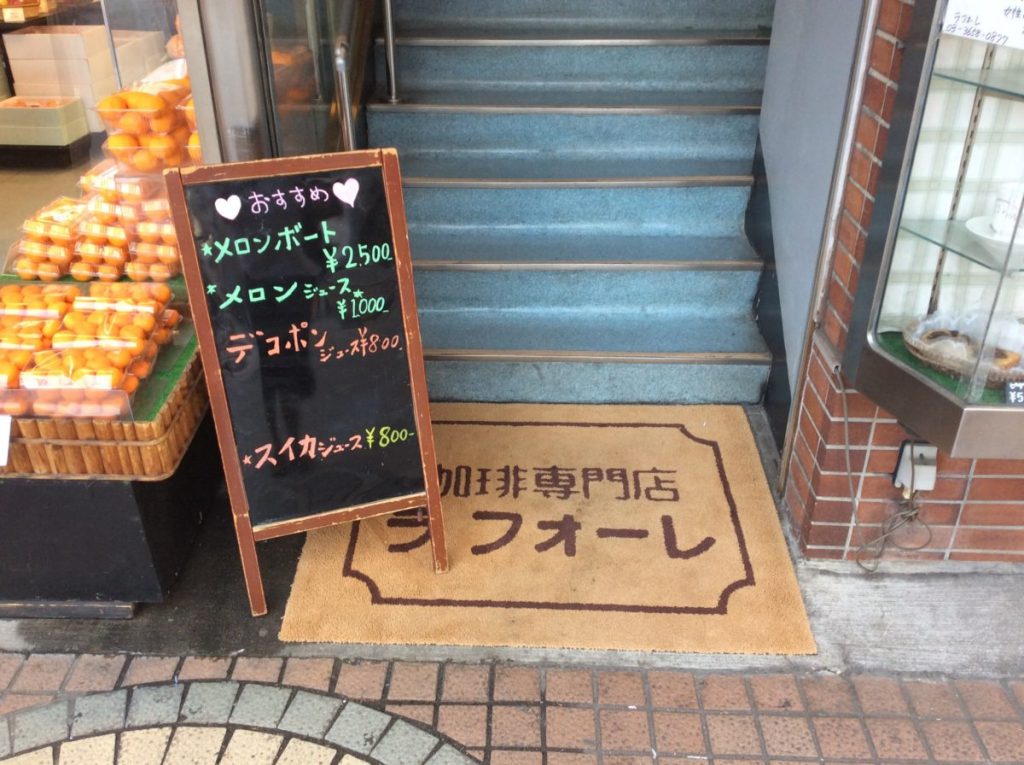 おすすめ
*メロンボート
¥2,500
*メロンジュース
¥1,000
デコポン
ジュース¥800
*スイカジュース ¥800-
珈琲専門店
ラフォーレ
ラフォーレ
03-3658-0877
女性